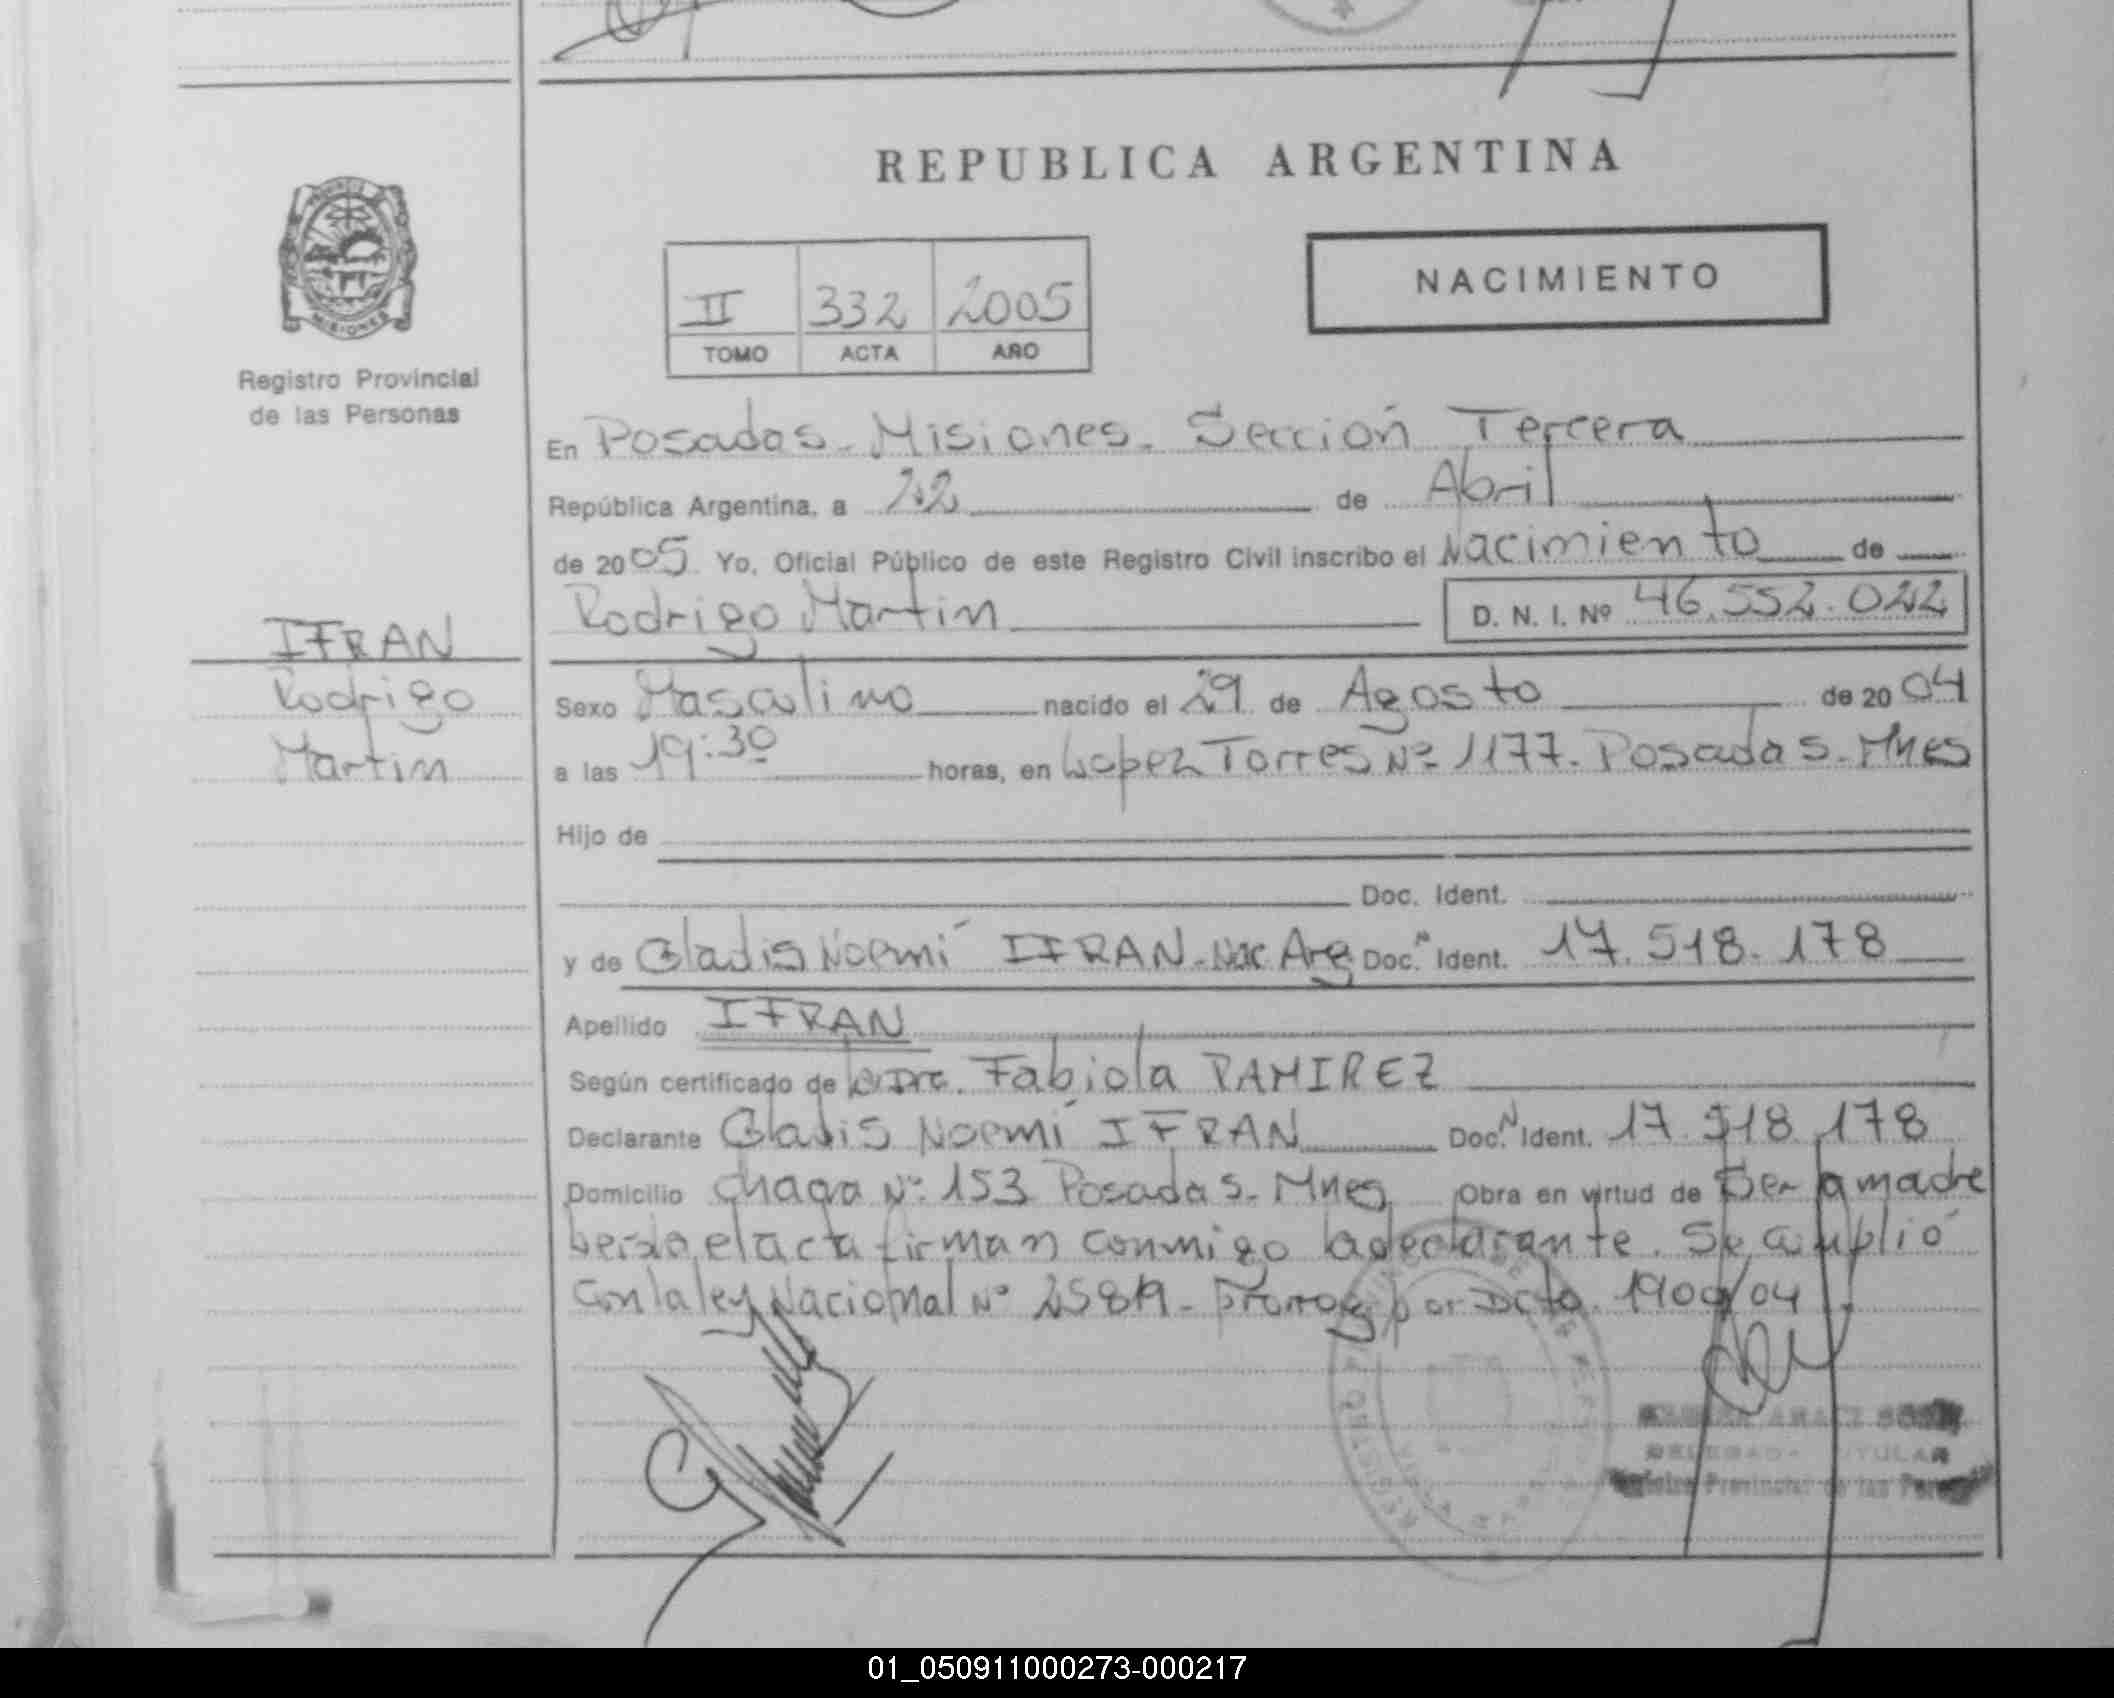 REPUBLICA ARGENTINA
NACIMIENTO
II 332 2005
TOMO ACTA AÑO
PROVINCIA
MISIONES
Registro Provincial
de las Personas
En Posadas - Misiones - Sección Tercera
República Argentina, a 22 de Abril
de 2005 Yo, Oficial Público de este Registro Civil inscribo el Nacimiento de
Rodrigo Martin D. N. I. Nº 46.552.022
IFRAN
Rodrigo
Martin
Sexo Masculino nacido el 29 de Agosto de 2004
a las 19:30 horas, en Lopez Torres Nº 1177. Posadas - Mnes
Hijo de
Doc. Ident.
y de Gladis Noemí IFRAN - Nac Arg Doc. Ident. 17.518.178
Apellido IFRAN
Según certificado de la Dra. Fabiola RAMIREZ
Declarante Gladis Noemí IFRAN Doc. Ident. 17.518.178
Domicilio chaga Nº 153 Posadas - Mnes Obra en virtud de Ser la madre
el acta firman conmigo la declarante. Se cumplió
con la ley Nacional Nº 25819 - Prorrog por Dcto. 1900/04
Provincial de las
01_050911000273-000217